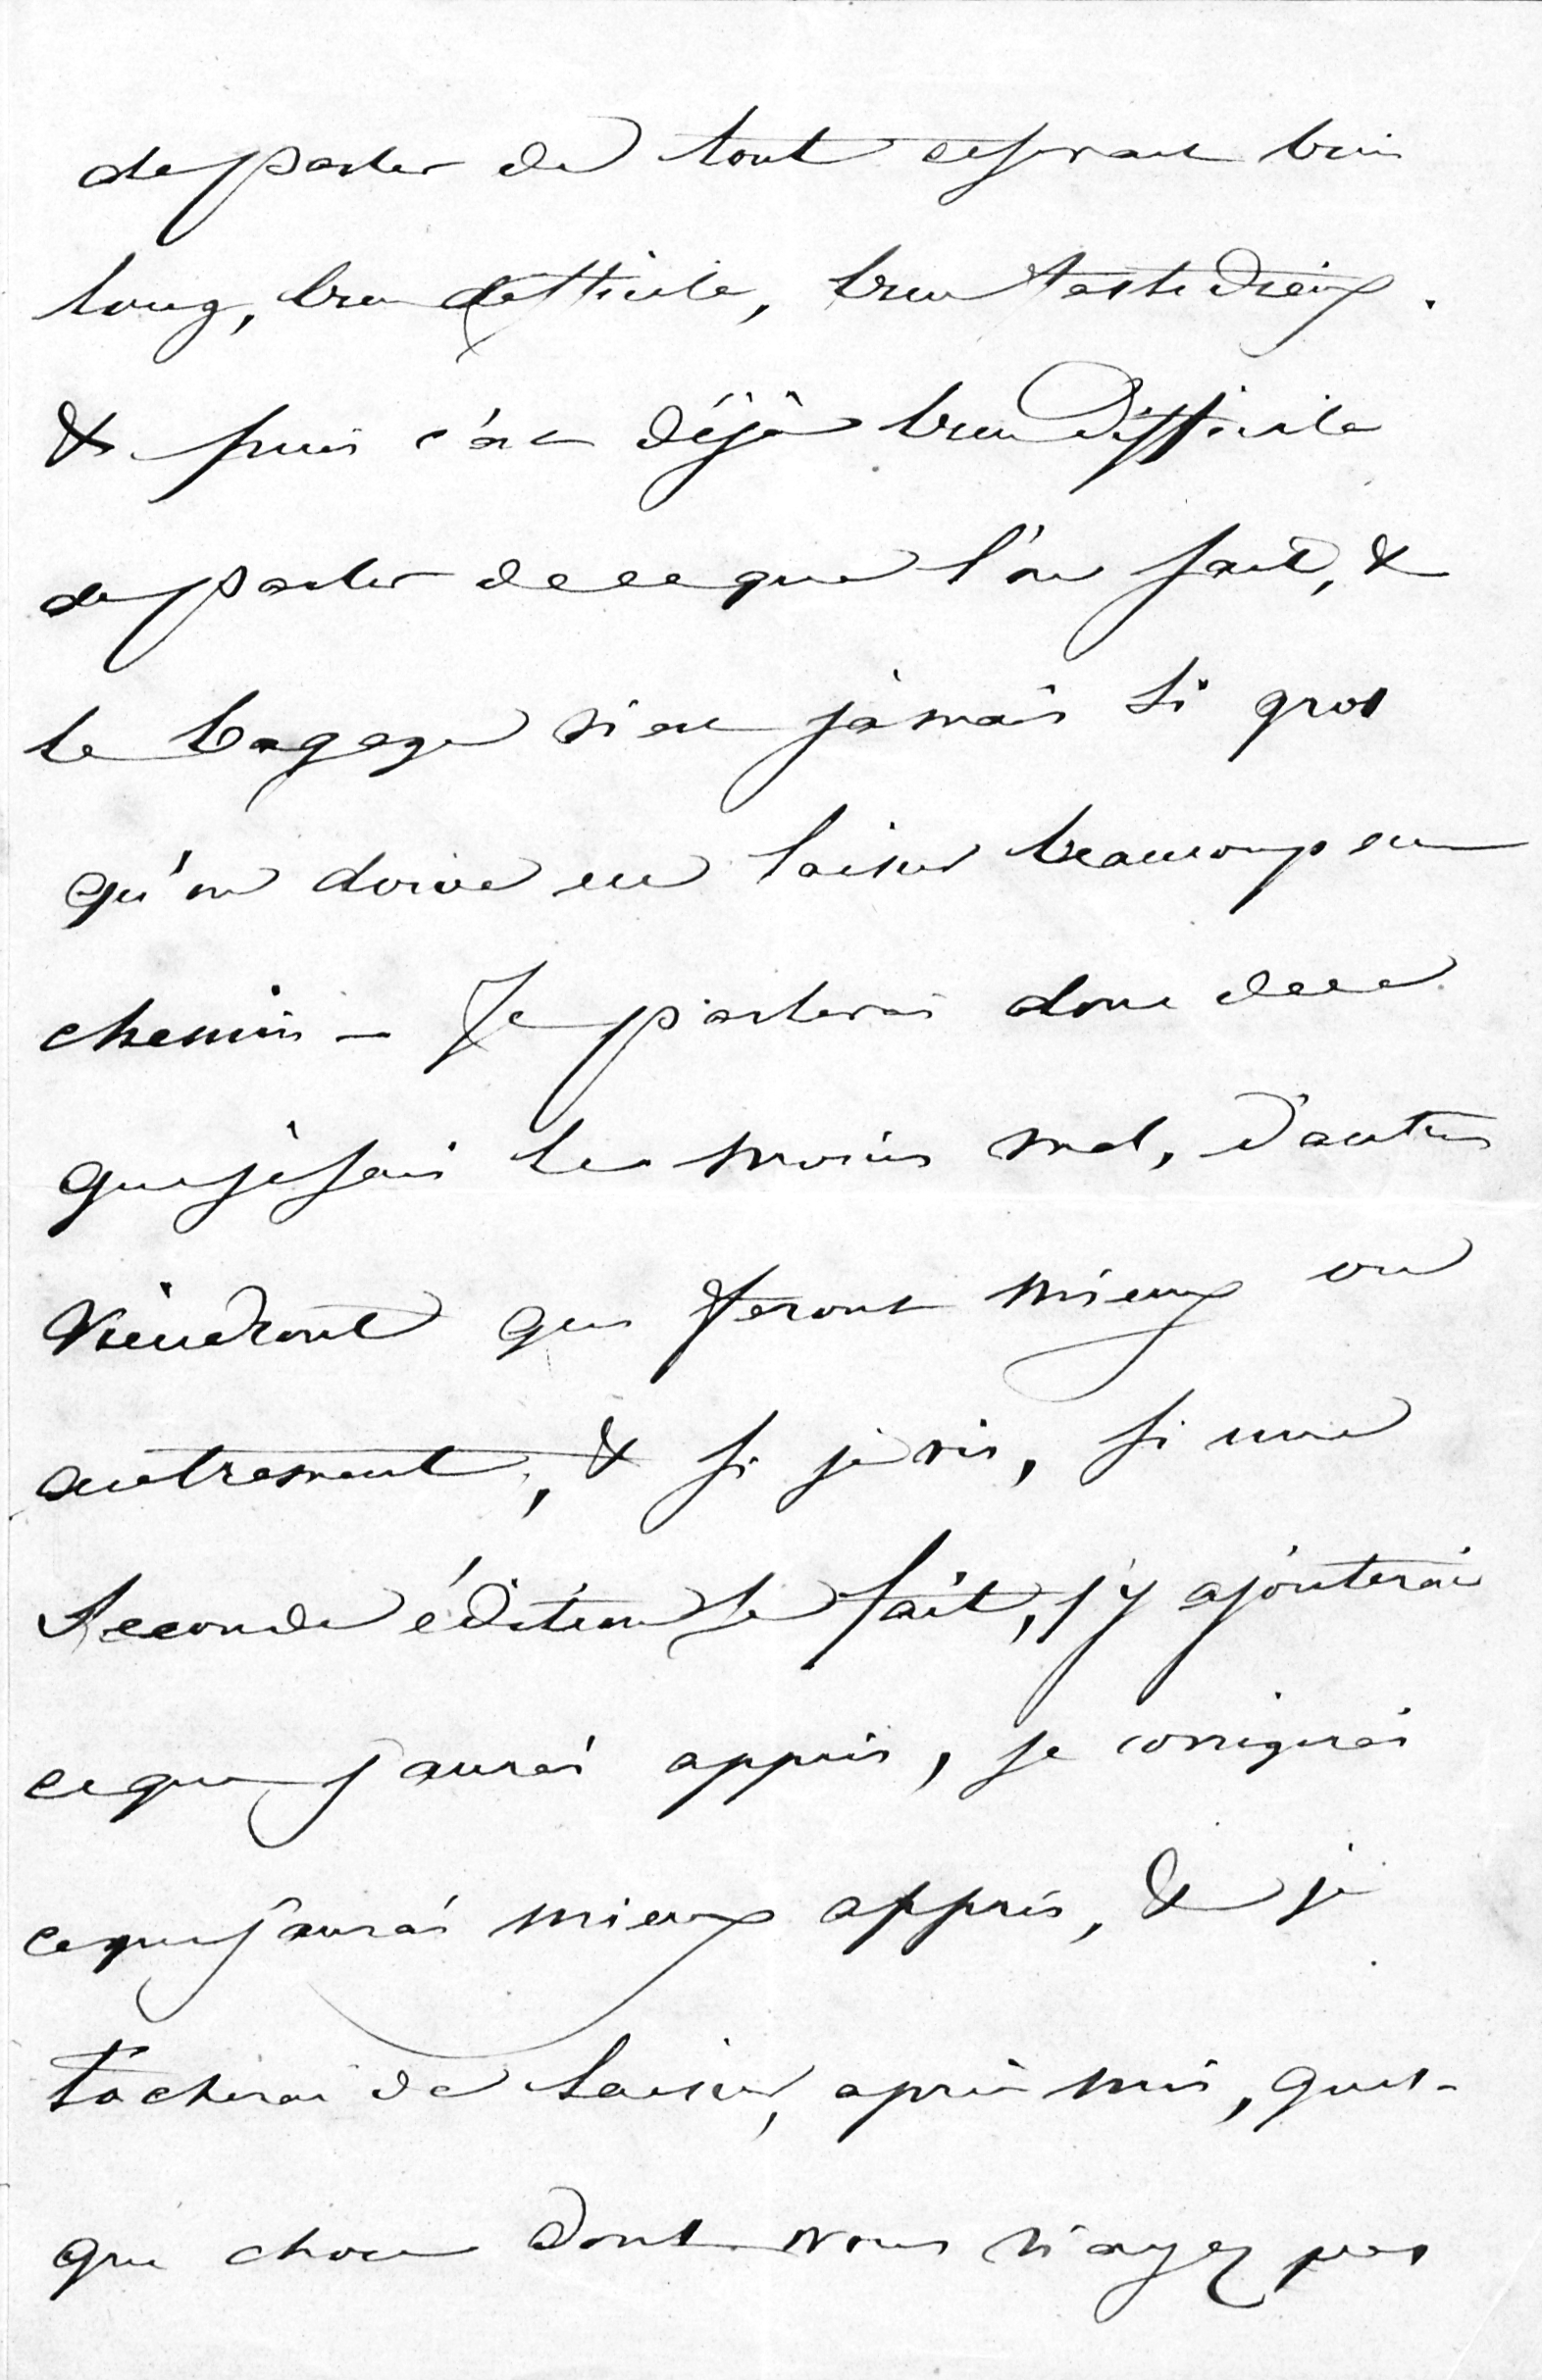 de parler de tout ce serait bien
long, bien difficile, bien fastidieux.
& puis c'est déjà bien difficile
de parler de ce que l'on sait, &
le bagage n'est jamais si gros
qu'on doive en laisser beaucoup en
chemin – Je parlerai donc de ce
que je sais le moins mal, d'autres
viendront qui feront mieux ou
autrement, & si je vis, si une
seconde édition se fait, j'y ajouterai
ce que j'aurai appris, je corrigerai
ce que j'aurai mieux appris, & je
tacherai de laisser, après moi, quel-
que chose dont vous n'ayez pas